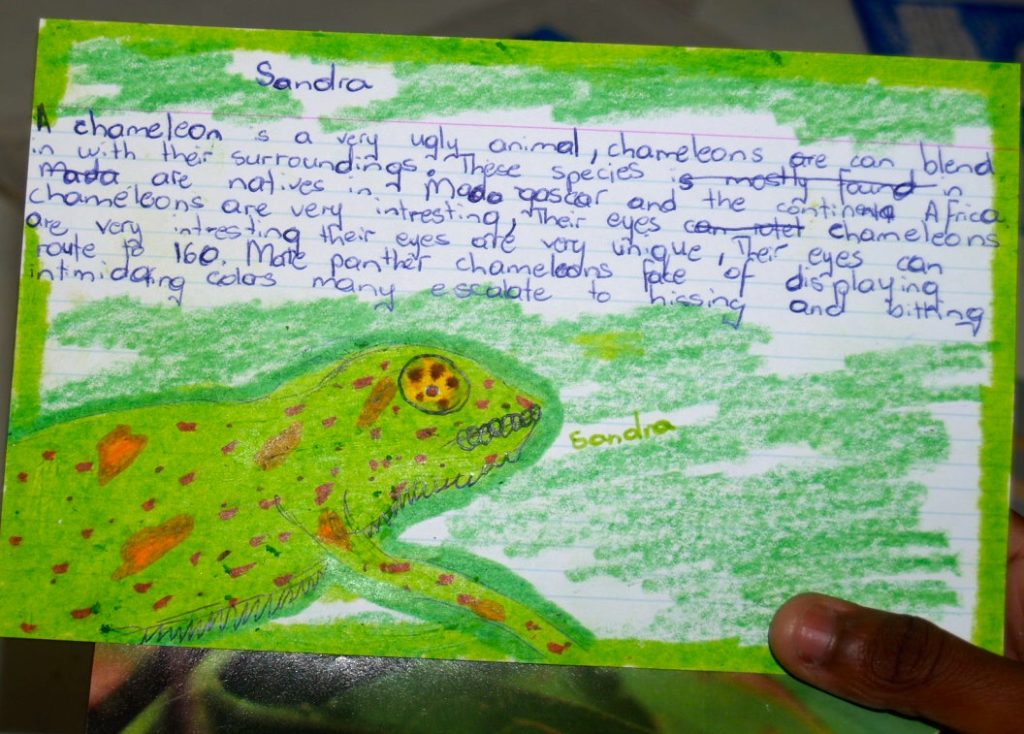 Sandra
A chameleon is a very ugly animal, chameleons are can blend
in with their surroundings. These species is mostly found in
Mada are natives in Madagascar and the continent Africa
chameleons are very intresting, Their eyes can rotet chameleons
are very intresting their eyes are very unique, Their eyes can
route to 160. Male panther chameleons face of displaying
intimidating colors many escalate to hissing and bitting
Sandra